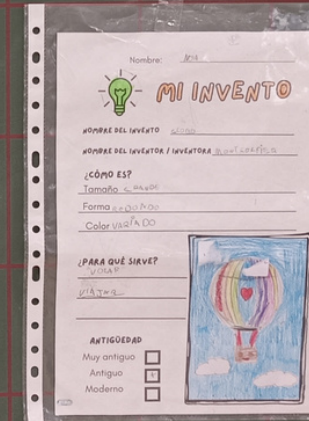 Nombre:
MI INVENTO
NOMBRE DEL INVENTO GLOBO
NOMBRE DEL INVENTOR / INVENTORA
¿CÓMO ES?
Tamaño GRANDE
Forma REDONDO
Color VARIADO
¿PARA QUÉ SIRVE?
VOLAR
VIAJAR
ANTIGÜEDAD
Muy antiguo
Antiguo
Moderno